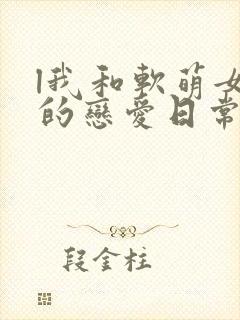 我和軟萌女
的戀愛日常
段金柱